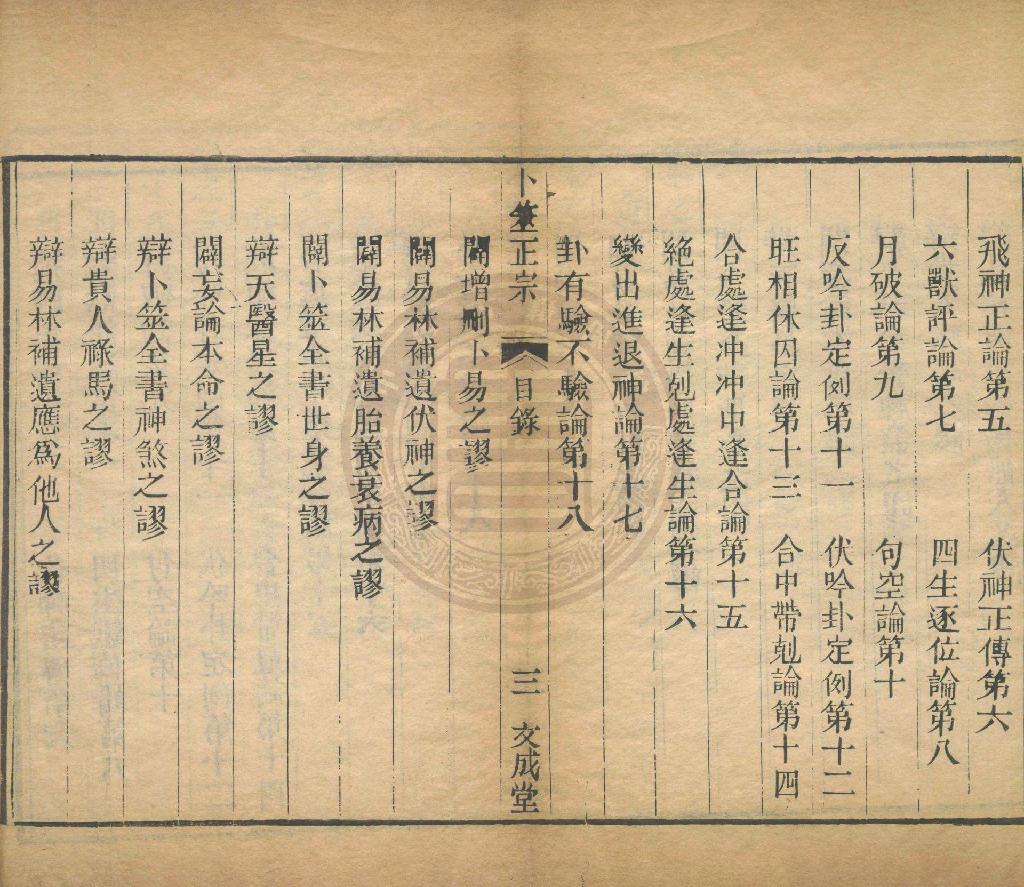 飛神正論第五　伏神正傳第六
六獸評論第七　四生逐位論第八
月破論第九　旬空論第十
反吟卦定例第十一　伏吟卦定例第十二
旺相休囚論第十三　合中帶剋論第十四
合處逢冲冲中逢合論第十五
絶處逢生剋處逢生論第十六
變出進退神論第十七
卦有驗不驗論第十八
卜筮正宗　目錄　三　文成堂
闢增刪卜易之謬
闢易林補遺伏神之謬
闢易林補遺胎養衰病之謬
闢卜筮全書世身之謬
辯天醫星之謬
闢妄論本命之謬
辯卜筮全書神煞之謬
辯貴人祿馬之謬
辯易林補遺應爲他人之謬